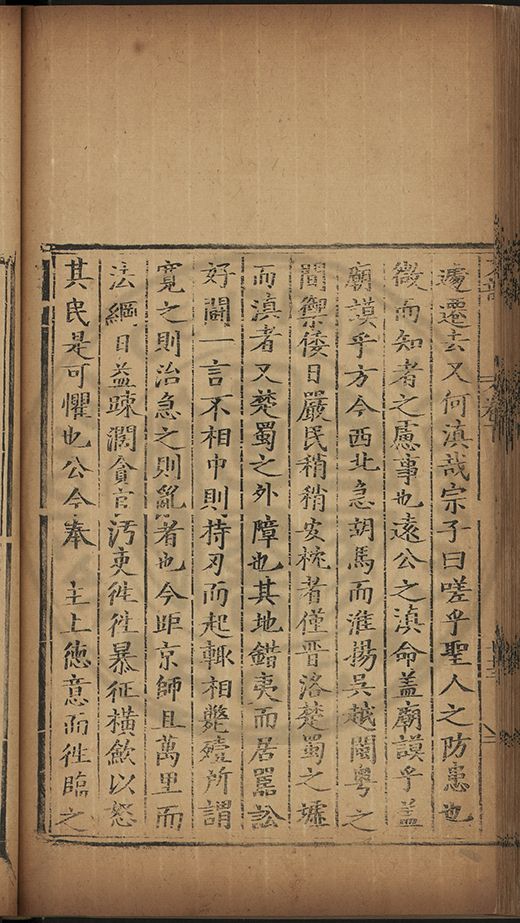 遽遷去又何滇哉宗子曰嗟乎聖人之防患也
微而知者之慮事也遠公之滇命盖廟謨乎盖
廟謨乎方今西北急胡馬而淮揚吳越閩粵之
間禦倭日嚴民稍稍安枕者僅晋洛楚蜀之墟
而滇者又楚蜀之外障也其地錯夷而居嚚訟
好鬪一言不相中則持刃而起輒相斃殪所謂
寬之則治急之則亂者也今距京師且萬里而
法綱日益踈濶貪官汚吏徃徃暴征橫歛以怒
其民是可懼也公今奉 主上德意而徃臨之